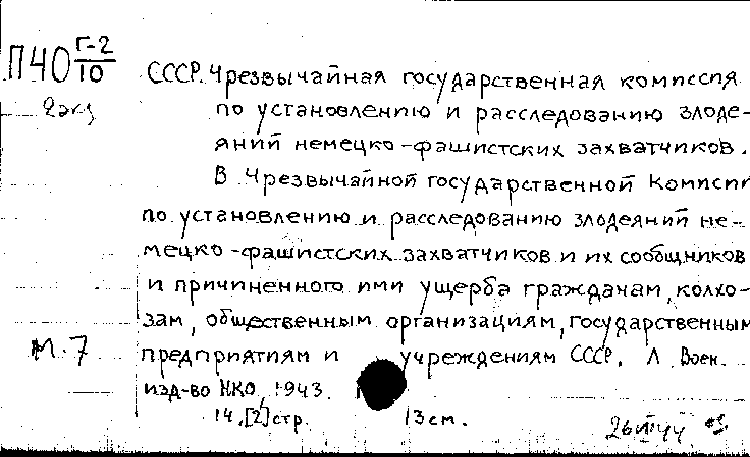 П40 Г-2/10
2 экз
СССР. Чрезвычайная государственная комиссия
по установлению и расследованию злоде-
яний немецко-фашистских захватчиков.
В Чрезвычайной государственной Комиссии
по установлению и расследованию злодеяний не-
мецко-фашистских захватчиков и их сообщников
и причиненного ими ущерба гражданам, колхо-
зам, общественным организациям, государственным
м.7 предприятиям и учреждениям СССР. Л Воен.
изд-во НКО, 1943.
14,[2]стр. 13см.
26 VII 44